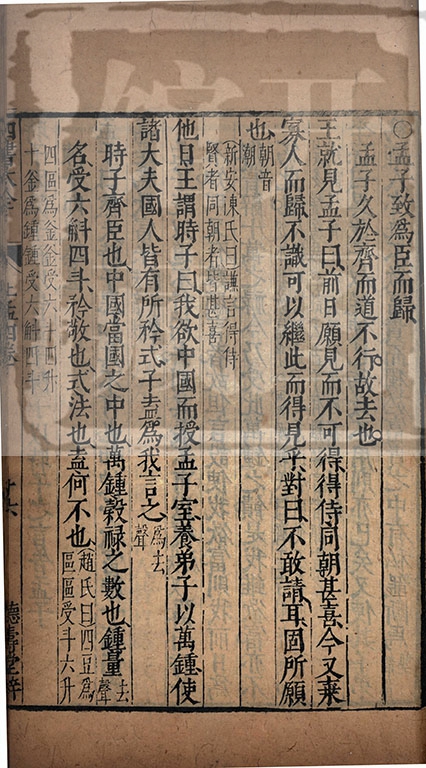 ○孟子致為臣而歸
孟子久於齊而道不行故去也
王就見孟子曰前日願見而不可得得侍同朝甚喜今又棄
寡人而歸不識可以繼此而得見乎對曰不敢請耳固所願
也
朝音
朝
新安陳氏曰謙言得侍
賢者同朝者皆甚喜
他日王謂時子曰我欲中國而授孟子室養弟子以萬鍾使
諸大夫國人皆有所矜式子盍為我言之
為去
聲
時子齊臣也中國當國之中也萬鍾穀祿之數也鍾量
去
聲
名受六斛四斗矜敬也式法也盍何不也
趙氏曰四豆為
區區受斗六升
四區為釜釜受六斗四升
十釜為鍾鍾受六斛四斗
四書大全
上孟四卷
德壽堂梓